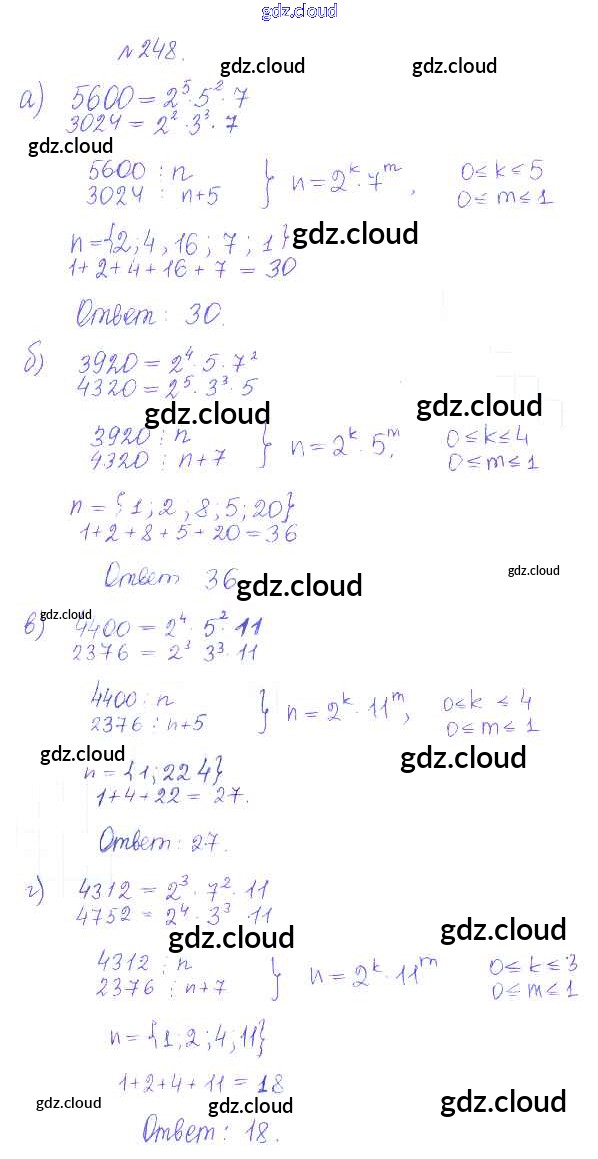 gdz.cloud
№248.
gdz.cloud gdz.cloud
а) 5600 = 2⁵·5²·7
3024 = 2²·3³·7
gdz.cloud
5600 ⋮ n
3024 ⋮ n+5 } n = 2ᵏ·7ᵐ, 0≤k≤5
0≤m≤1
n={2;4,16;7;1} gdz.cloud
1+2+4+16+7 = 30
Ответ: 30.
б) 3920 = 2⁴·5·7²
4320 = 2⁵·3³·5
gdz.cloud gdz.cloud
3920 ⋮ n
4320 ⋮ n+7 } n = 2ᵏ·5ᵐ, 0≤k≤4
0≤m≤1
n = {1;2;8;5;20}
1+2+8+5+20=36
Ответ 36 gdz.cloud
gdz.cloud
gdz.cloud
в) 4400 = 2⁴·5²·11
2376 = 2³·3³·11
4400 ⋮ n
2376 ⋮ n+5 } n = 2ᵏ·11ᵐ, 0≤k≤4
0≤m≤1
gdz.cloud gdz.cloud
n = {1;22 4}
1+4+22 = 27.
Ответ: 27.
г) 4312 = 2³·7²·11
4752 = 2⁴·3³·11
gdz.cloud gdz.cloud
4312 ⋮ n
2376 ⋮ n+7 } n = 2ᵏ·11ᵐ 0≤k≤3
0≤m≤1
n = {1;2;4;11}
1+2+4+11=18
gdz.cloud gdz.cloud gdz.cloud
Ответ: 18.